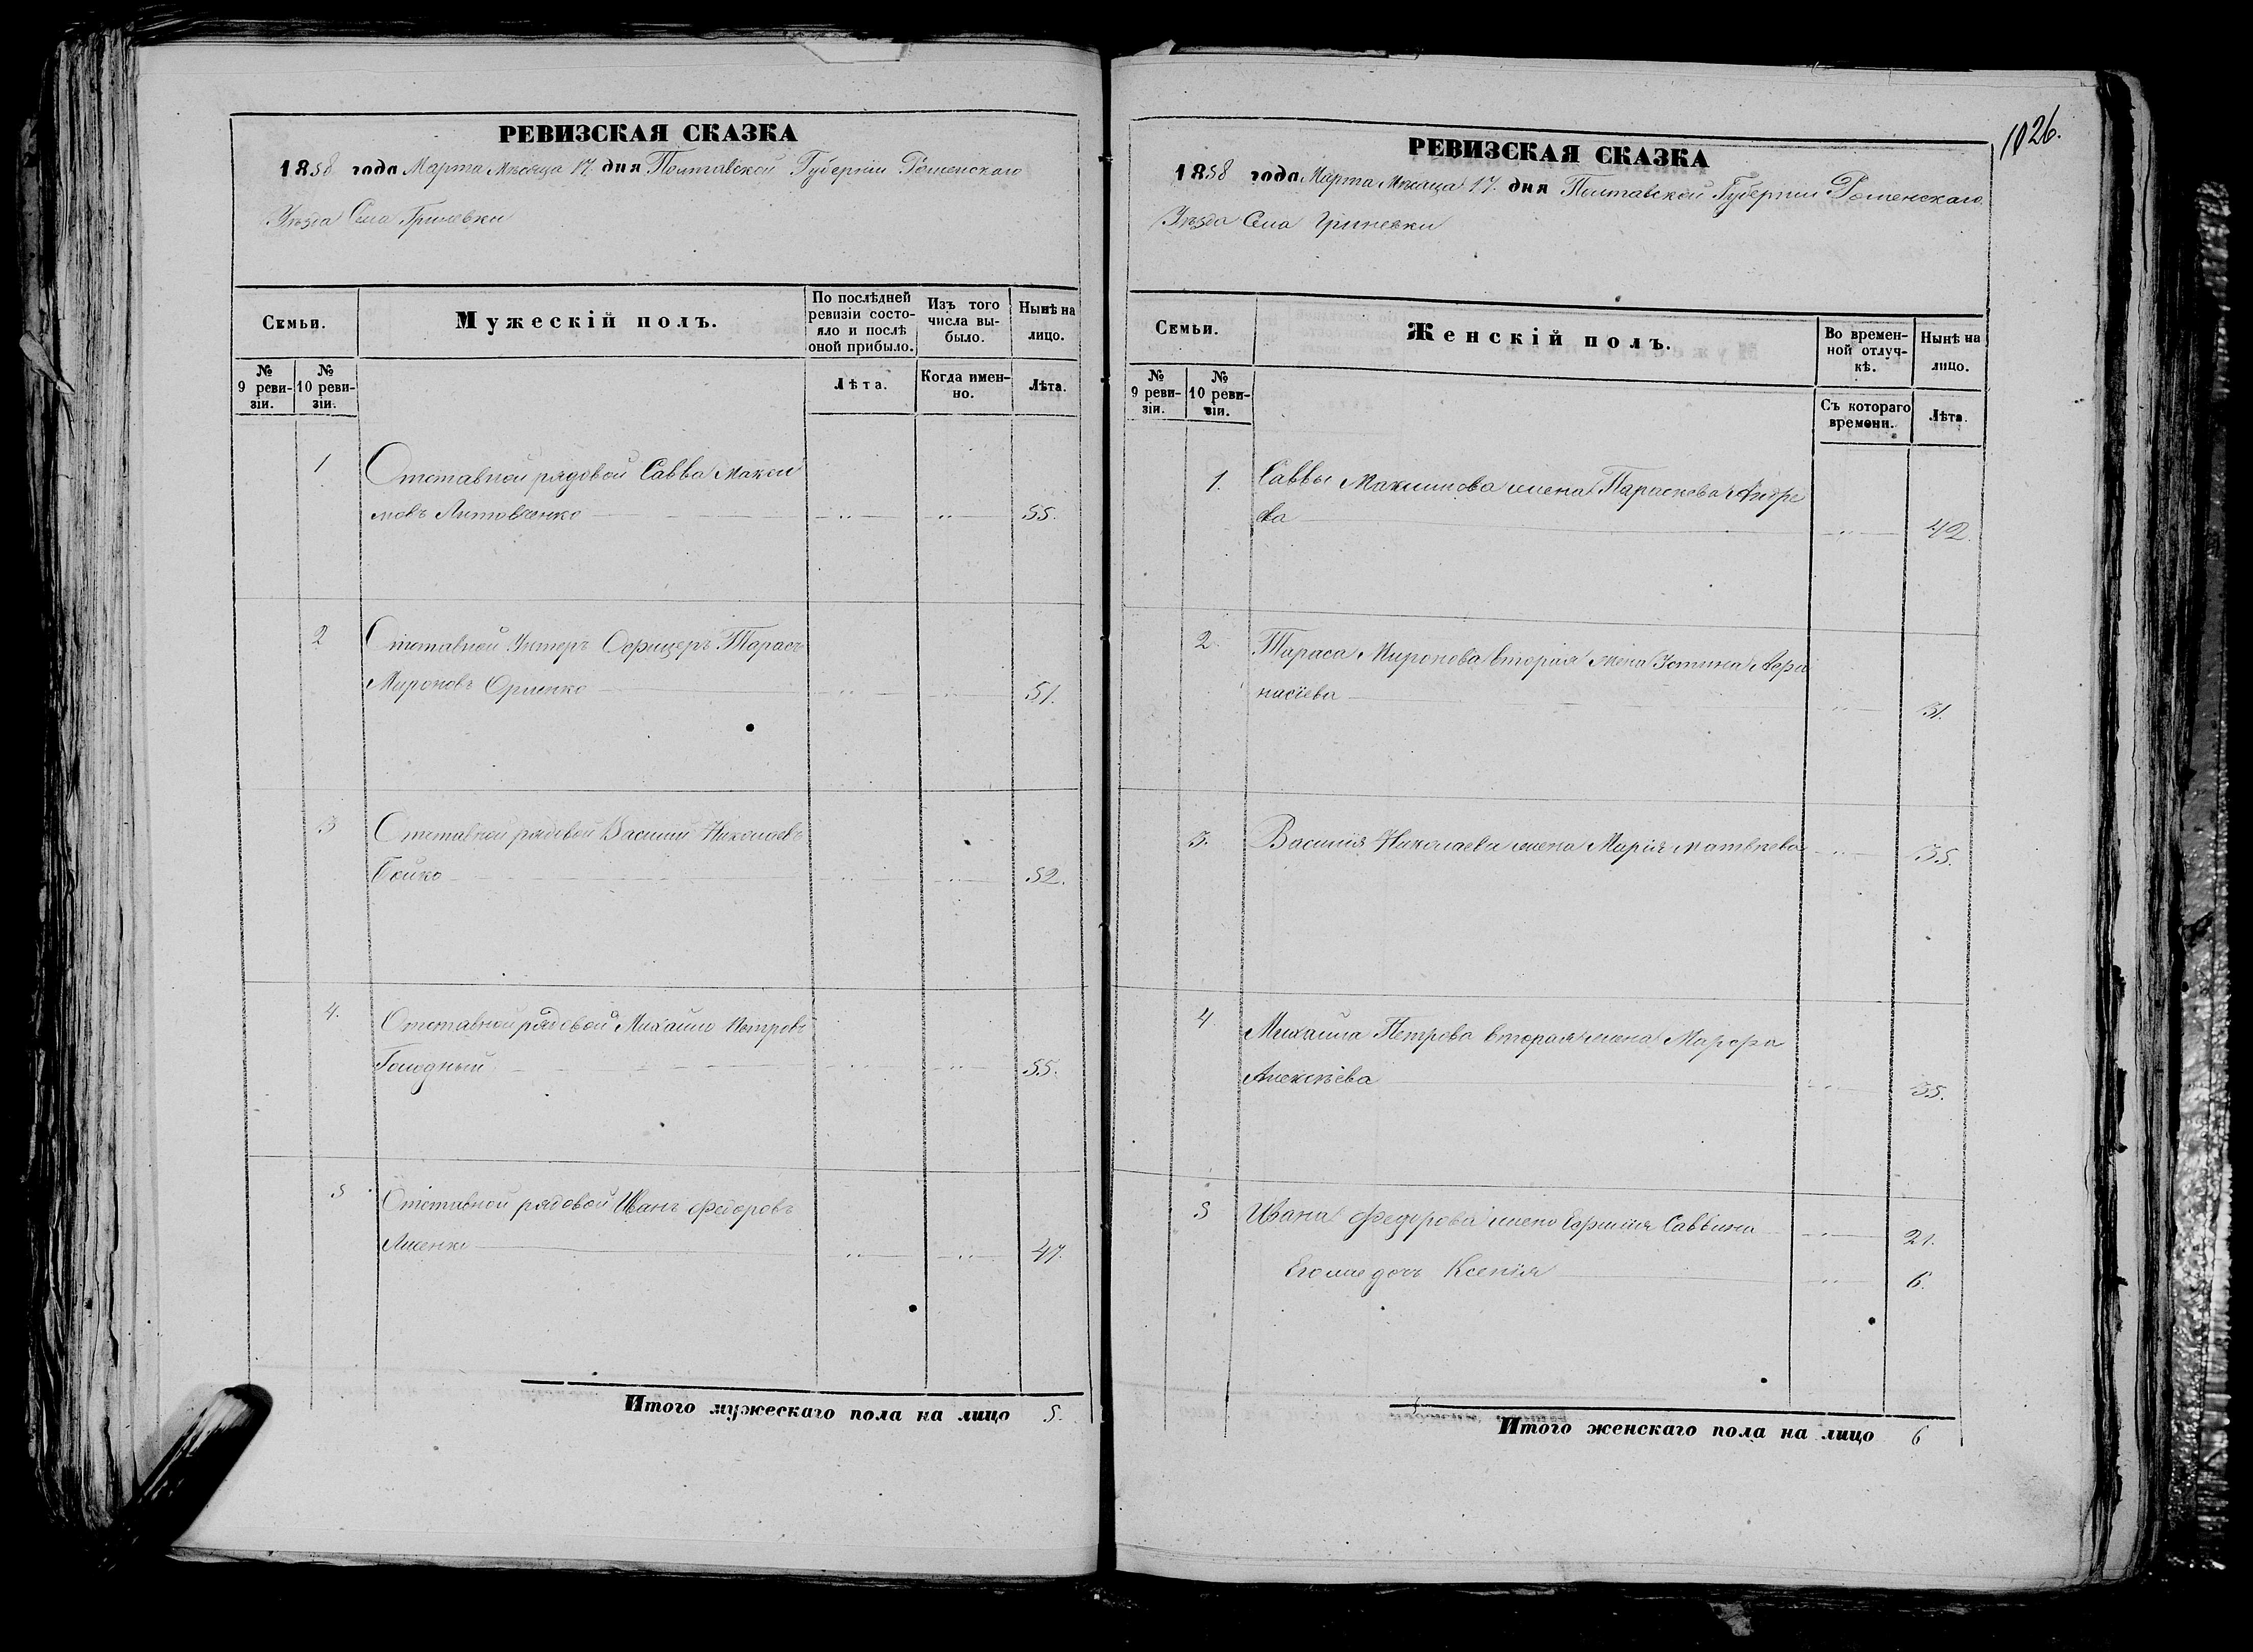 РЕВИЗСКАЯ СКАЗКА
1858 года Марта Мѣсяца 17. дня Полтавской Губерніи Роменскаго
Уѣзда Села Гриневки
Семьи.
Мужескій полъ.
По послѣдней ревизіи состояло и послѣ оной прибыло.
Изъ того числа выбыло.
Нынѣ на лицо.
№ 9 ревизіи.
№ 10 ревизіи.
Лѣта.
Когда именно.
Лѣта.
1 Отставной рядовой Савва Макси
мовъ Литовченко 55.
2 Отставной Унтеръ Офицеръ Тарасъ
Мироновъ 51.
3 Отставной рядовой Василий Николаевъ
Бойко 52.
4. Отставной рядовой Михайло Петровъ
Голодный 55.
5 Отставной рядовой Иванъ Федоровъ
47.
Итого мужескаго пола на лицо 5.
1026.
РЕВИЗСКАЯ СКАЗКА
1858 года Марта Мѣсяца 17. дня Полтавской Губерніи Роменскаго
Уѣзда Села Гриневки
Семьи.
Женскій полъ.
Во временной отлучкѣ.
Нынѣ на лицо.
№ 9 ревизіи.
№ 10 ревизіи.
Съ котораго времени.
Лѣта.
1. Саввы Максимова жена Параскева Андре
ева 42.
2. Тараса Миронова вторая жена Устина Афа
насіева 31.
3. Василія Николаева жена Марія Матвѣева 35.
4 Михайла Петрова вторая жена Марфа
Алексѣева 35.
5 Ивана Федорова жена Евфимія Саввина 21.
Его же дочь Ксенія 6.
Итого женскаго пола на лицо 6